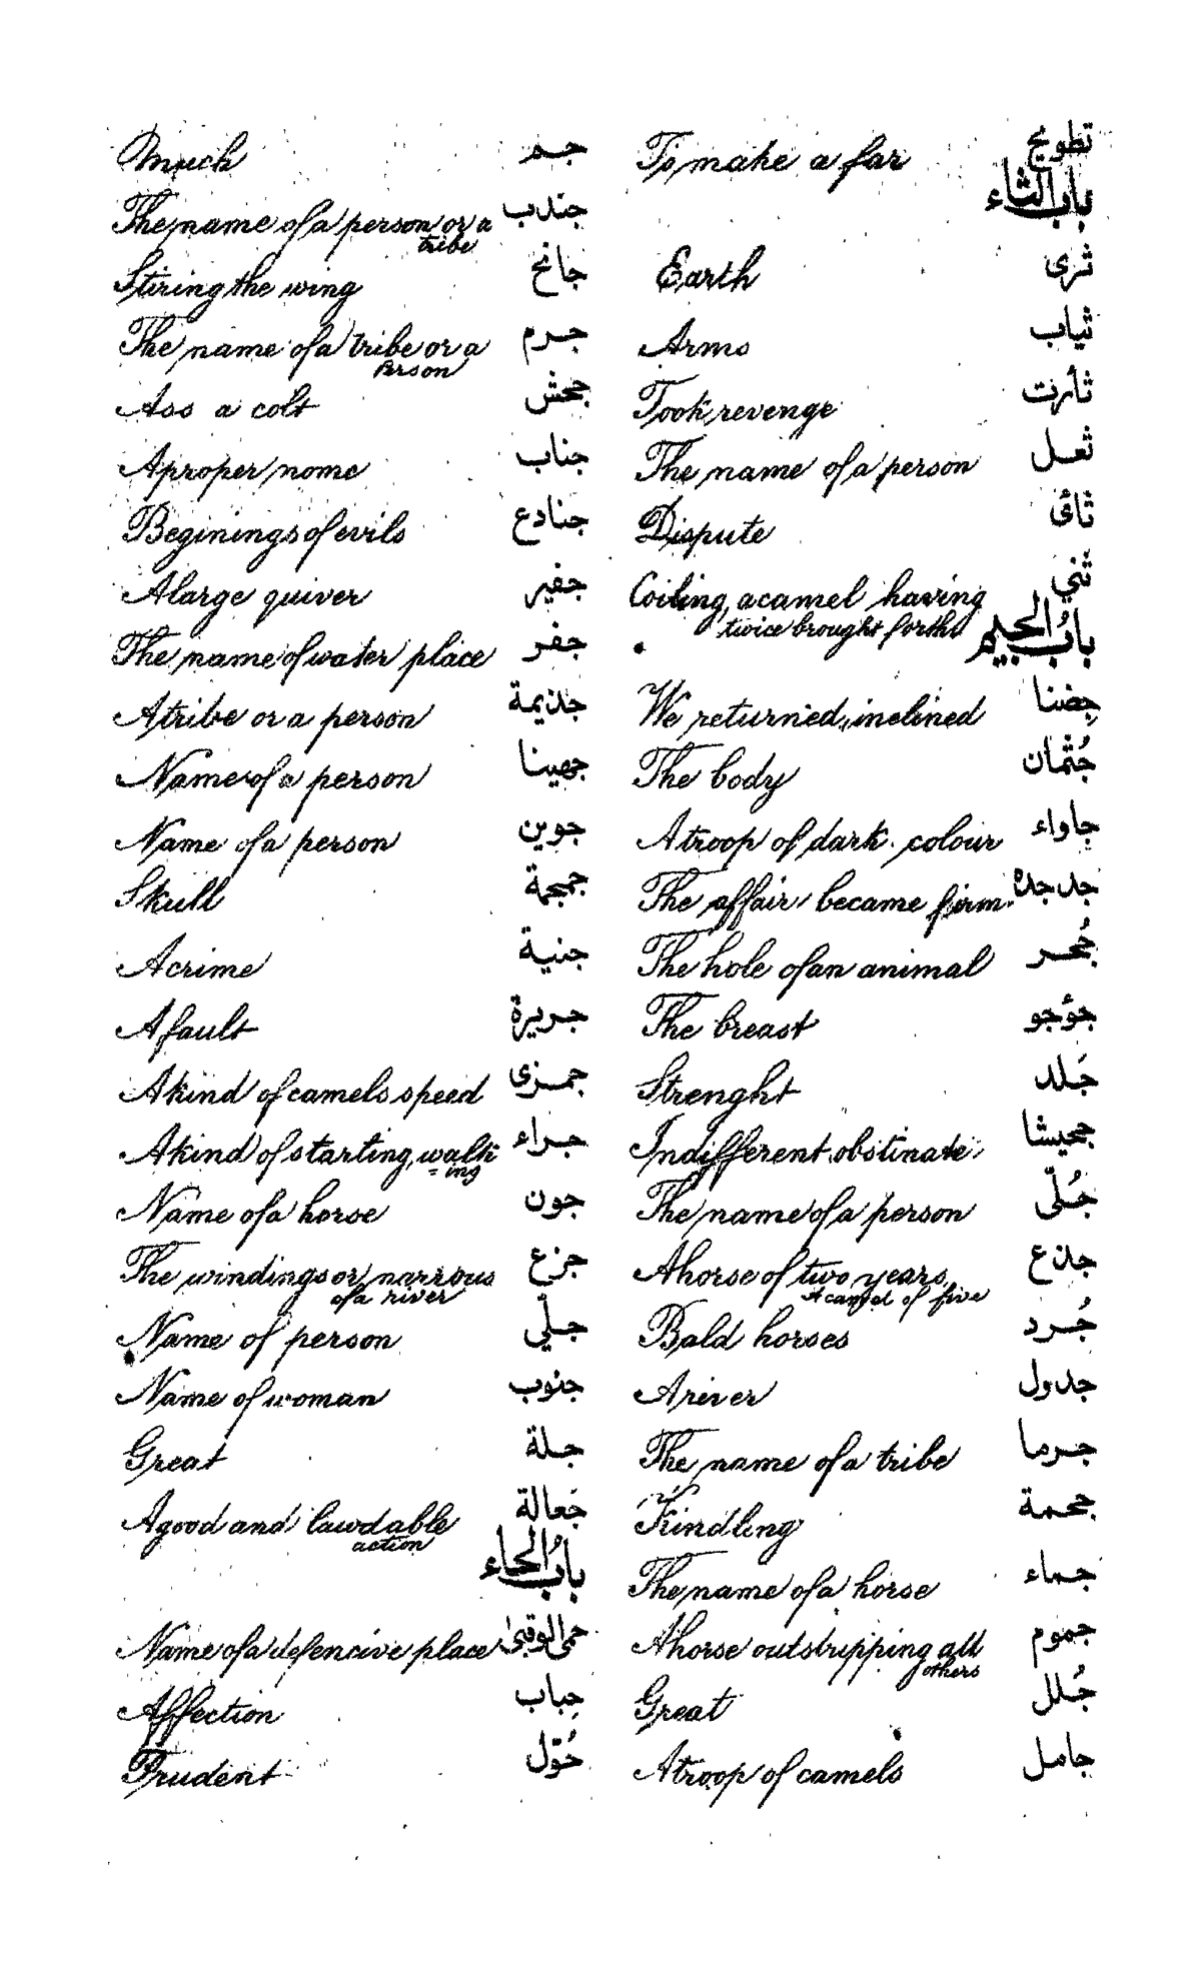 تطويح To make a far
باب الثاء
ثرى Earth
ثياب Arms
ثأرت Took revenge
ثعل The name of a person
ثائ Dispute
ثني Coiling, a camel having
twice brought forth
بابُ الجيم
جِضنا We returned, inclined
جُثمان The body
جاواء A troop of dark colour
جد جده The affair became firm
جُحر The hole of an animal
جؤجو The breast
جَلد Strenght
جحيشا Indifferent, obstinate
جُلّى The name of a person
جذع A horse of two years,
A camel of five
جُرد Bald horses
جدول A river
جرما The name of a tribe
جحمة Kindling
جماء The name of a horse
جموم A horse outstripping all
others
جُلل Great
جامل A troop of camels
جم Much
جندب The name of a person or a
tribe
جانح Stiring the wing
جرم The name of a tribe or a
Person
جحش Ass a colt
جناب A proper nome
جنادع Beginings of evils
جفير A large quiver
جفر The name of water place
جذيمة A tribe or a person
جهينا Name of a person
جوين Name of a person
جمجمة Skull
جنية A crime
جريرة A fault
جمزى A kind of camels speed
جراء A kind of starting, walk
=ing
جون Name of a horse
جزع The windings or narrous
of a river
جلّي Name of person
جنوب Name of woman
جلة Great
جَعالة A good and lawdable
action
بابُ الحاء
حمى الوقبى Name of a defencive place
حِباب Affection
حُوّل Prudent